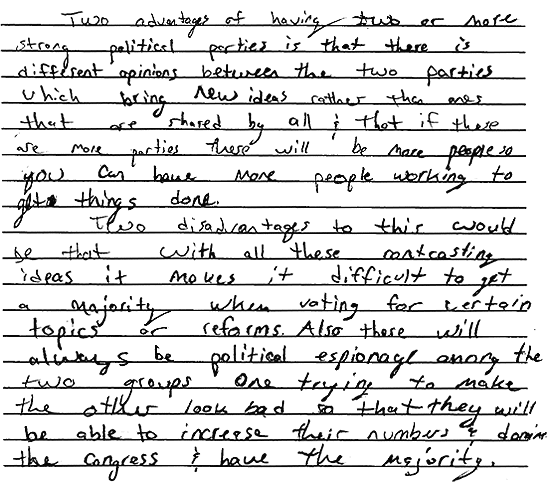 Two advantages of having two or more
strong political parties is that there is
different opinions between the two parties
which bring new ideas rather than ones
that are shared by all & that if there
are more parties there will be more people so
you can have more people working to
get things done.
Two disadvantages to this would
be that with all these contrasting
ideas it makes it difficult to get
a majority when voting for certain
topics or reforms. Also there will
always be political espionage among the
two groups one trying to make
the other look bad so that they will
be able to increase their numbers &
the Congress & have the majority.